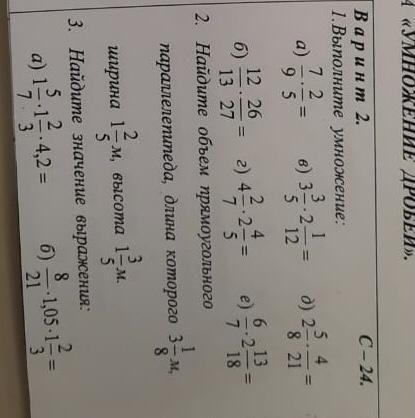 А «УМНОЖЕНИЕ ДРОБЕЙ».
Вариант 2. С – 24.
1.Выполните умножение:
а) 7/9 · 2/5 = в) 3 3/5 · 2 1/12 = д) 2 5/8 · 4/21 =
б) 12/13 · 26/27 = г) 4 2/7 · 2 4/5 = е) 6/7 · 2 13/18 =
2. Найдите объем прямоугольного
параллелепипеда, длина которого 3 1/8 м,
ширина 1 2/5 м, высота 1 3/5 м.
3. Найдите значение выражения:
а) 1 5/7 · 1 2/3 · 4,2 = б) 8/21 · 1,05 · 1 2/3 =